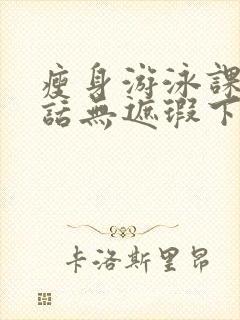 瘦身游泳課
話無遮瑕下
卡洛斯里昂